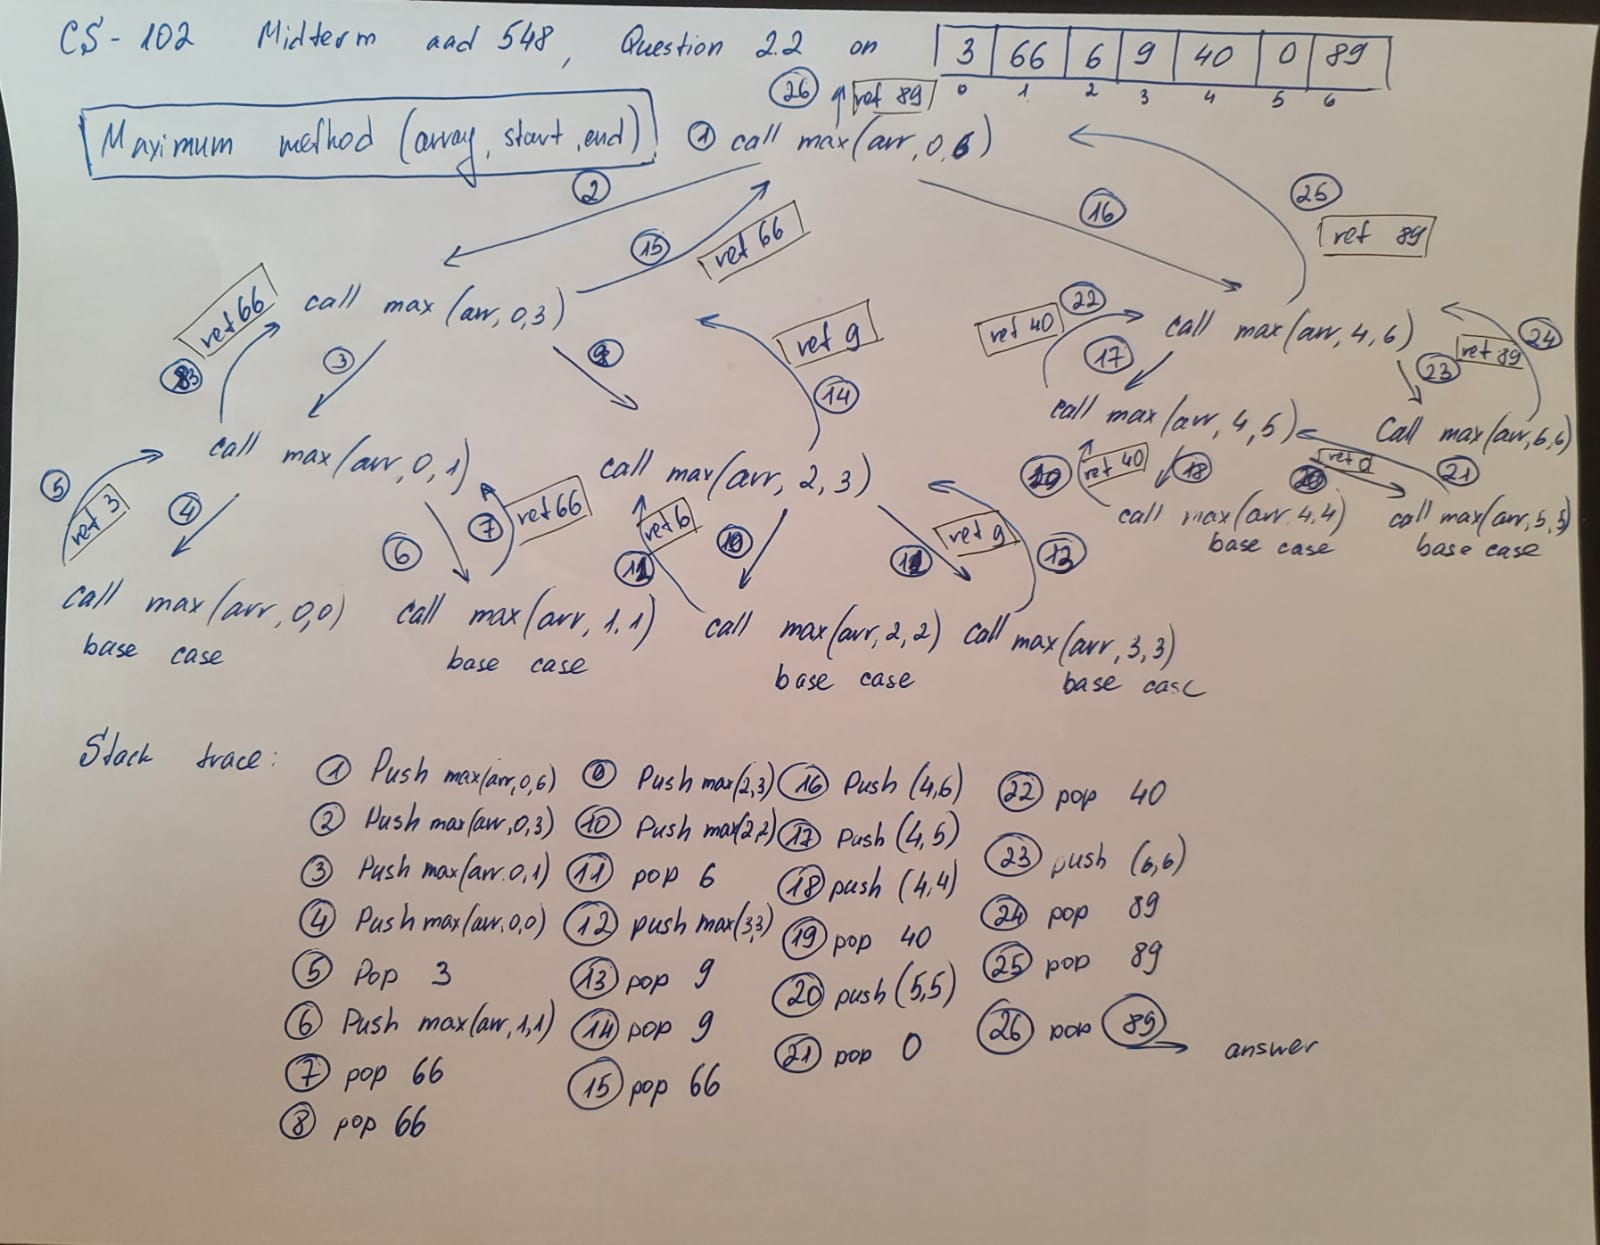 CS-102 Midterm aad 548, Question 2.2 on 3 66 6 9 40 0 89
0 1 2 3 4 5 6
26 ret 89
Maximum method (array, start, end)
1 call max(arr, 0, 6)
2
15 ret 66
16
25 ret 89
ret 66
call max(arr, 0,3)
ret 9
ret 40 22
call max(arr, 4,6)
24
ret 89
8
3
9
14
17
23
call max(arr, 0,1)
call max(arr, 2,3)
call max(arr, 4,5)
call max(arr, 6,6)
5
ret 3
4
6
7 ret 66
ret 6
11
10
12
ret 9
13
19 ret 40
18
ret 0
20
21
call max(arr, 4,4)
base case
call max(arr, 5,5)
base case
call max(arr, 0,0)
base case
call max(arr, 1,1)
base case
call max(arr, 2,2)
base case
call max(arr, 3,3)
base case
Stack trace:
1 Push max(arr,0,6)
2 Push max(arr,0,3)
3 Push max(arr,0,1)
4 Push max(arr,0,0)
5 Pop 3
6 Push max(arr,1,1)
7 pop 66
8 pop 66
9 Push max(2,3)
10 Push max(2,2)
11 pop 6
12 push max(3,3)
13 pop 9
14 pop 9
15 pop 66
16 Push (4,6)
17 Push (4,5)
18 push (4,4)
19 pop 40
20 push (5,5)
21 pop 0
22 pop 40
23 push (6,6)
24 pop 89
25 pop 89
26 pop 89 answer